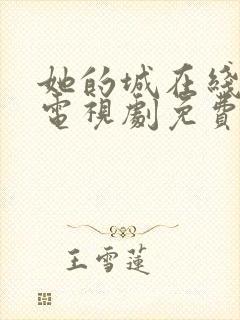 她的城在綫
電視劇免費
王雪蓮